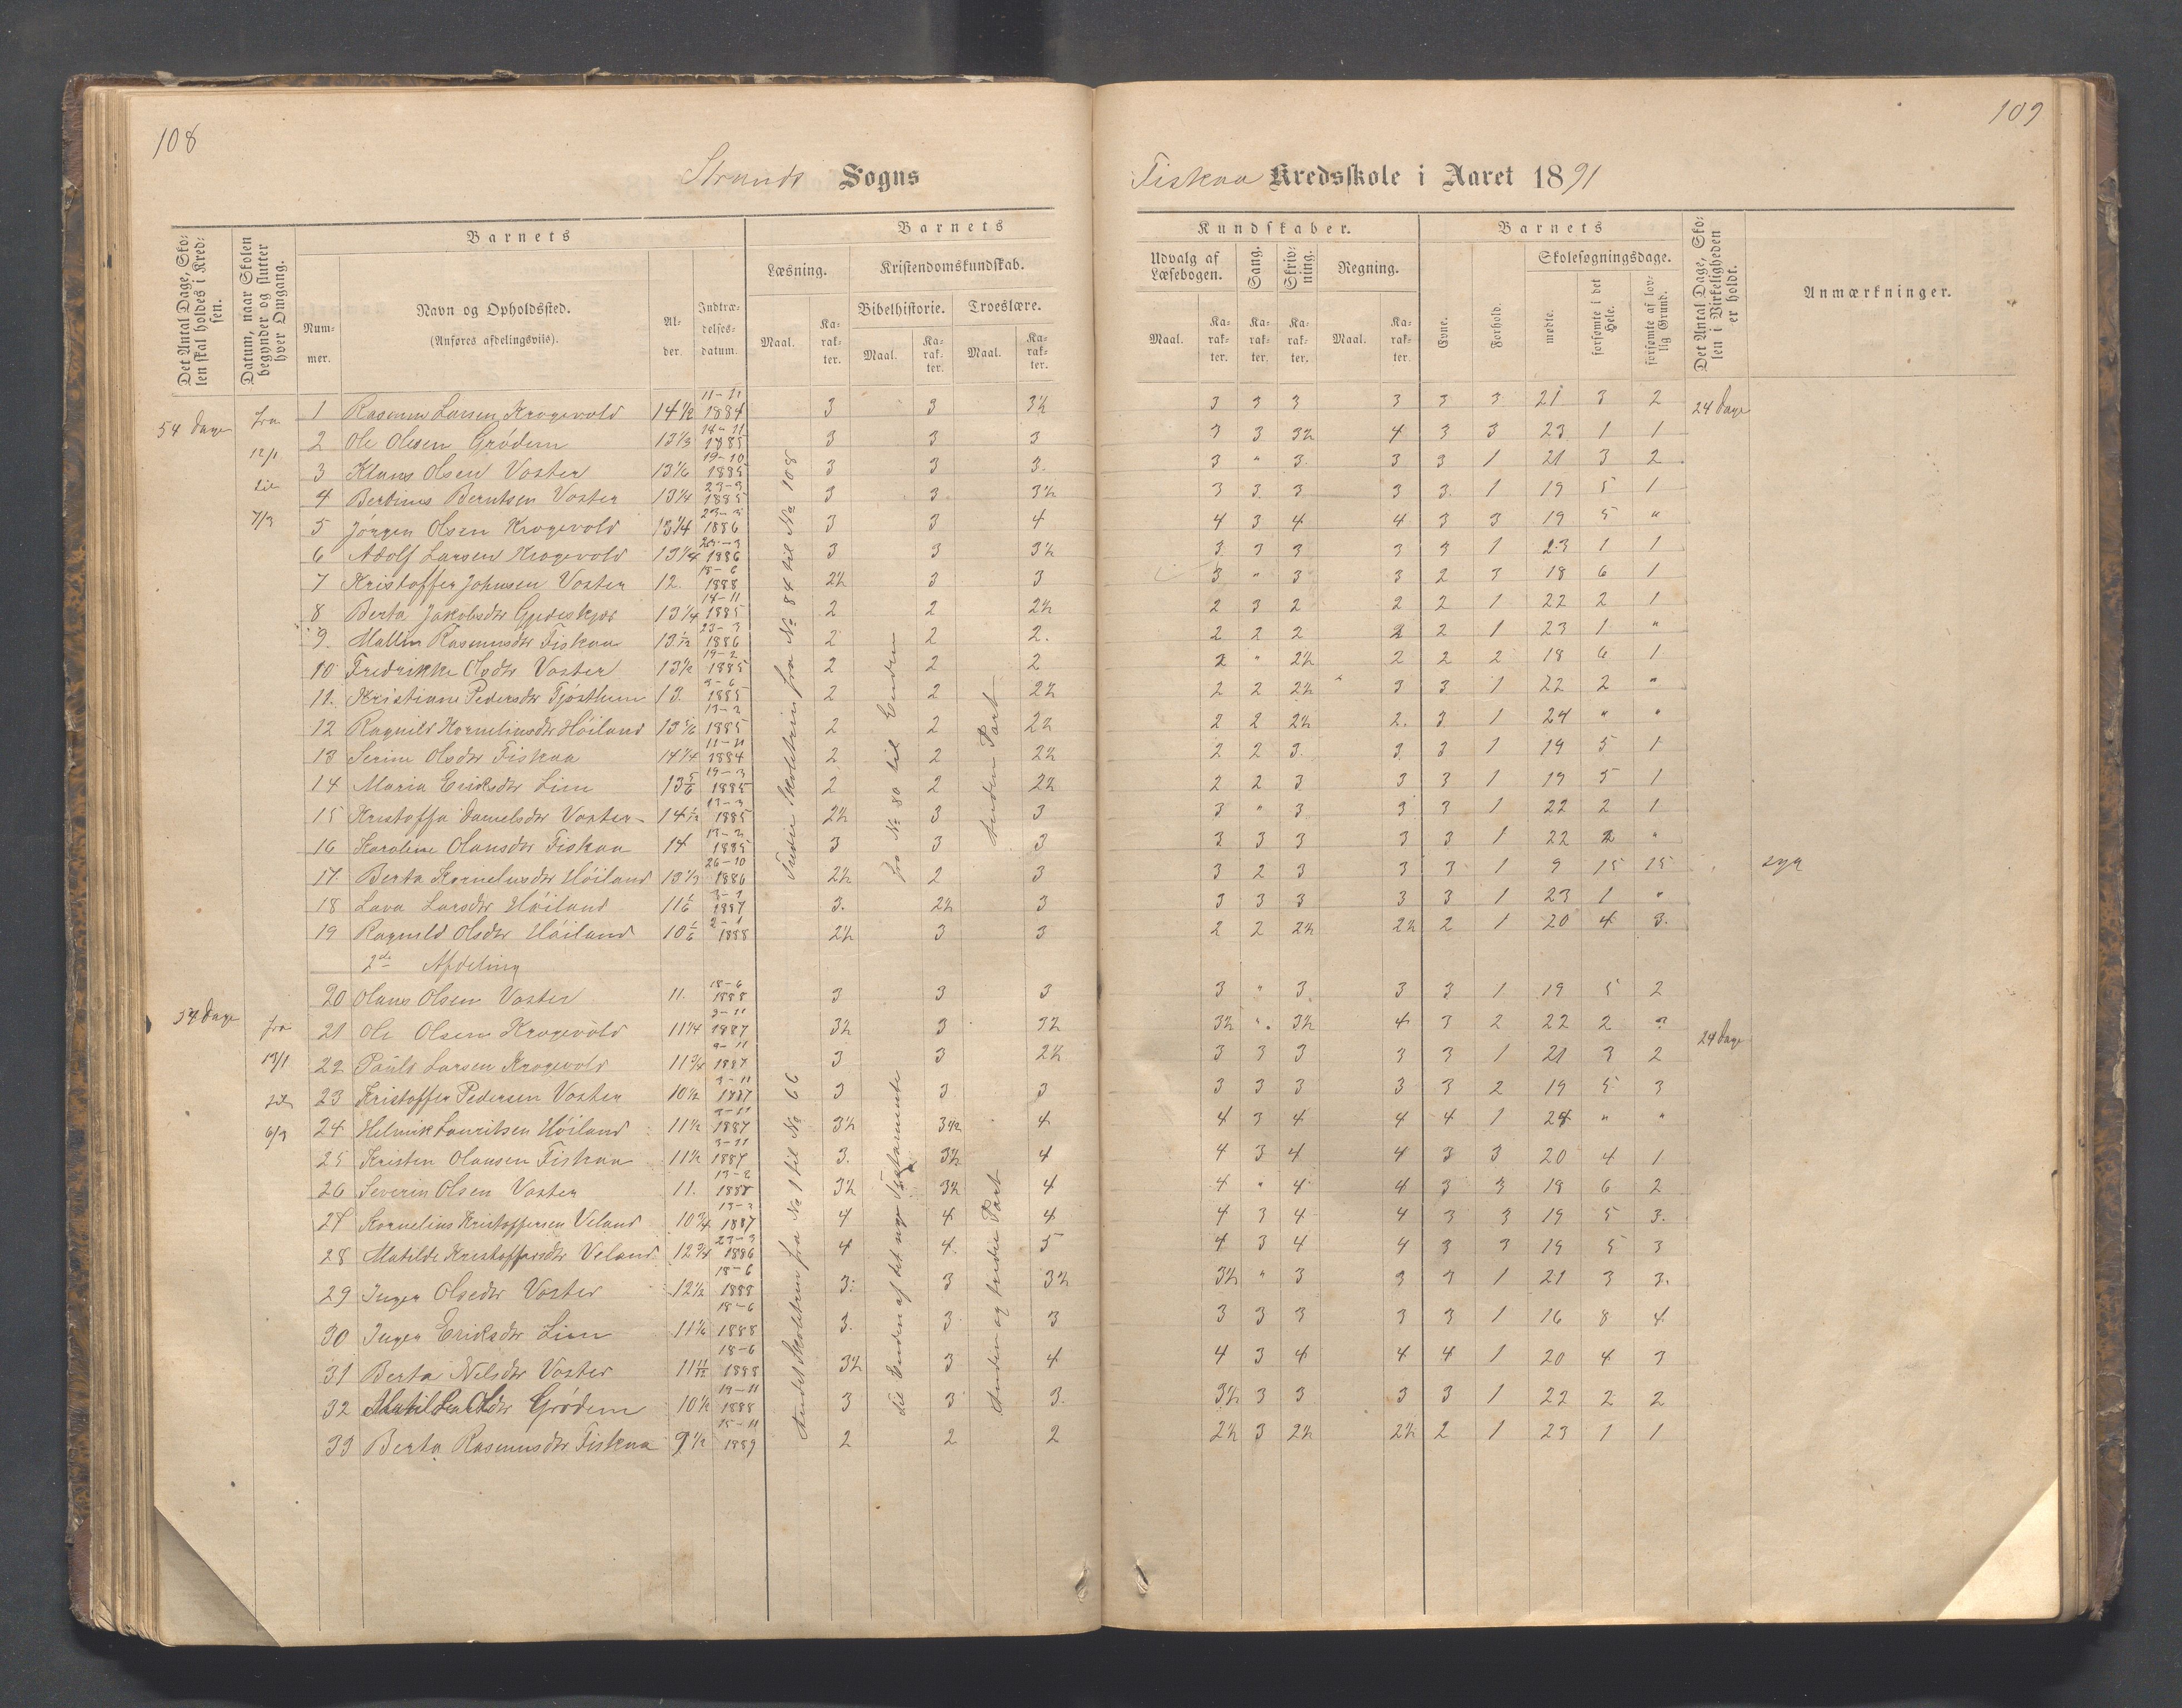 108
109
Strands Sogns
Fiskaa Kredsskole i Aaret 1891
Det Antal Dage, Skolen skal holdes i Kredsen.
Datum, naar Skolen begynder og slutter hver Omgang.
Barnets
Nummer.
Navn og Opholdssted.
(Anføres afdelingsviis).
Alder.
Indtrædelsesdatum.
Barnets
Læsning.
Kristendomskundskab.
Bibelhistorie.
Troeslære.
Maal.
Karakter.
Maal.
Karakter.
Maal.
Karakter.
Kundskaber.
Udvalg af Læsebogen.
Sang.
Skrivning.
Regning.
Maal.
Karakter.
Karakter.
Karakter.
Maal.
Karakter.
Barnets
Evne.
Forhold.
Skolesøgningsdage.
mødte.
forsømte i det Hele.
forsømte af lovlig Grund.
Det Antal Dage, Skolen i Virkeligheden er holdt.
Anmærkninger.
54 Dage fra 12/1 til 7/3
Tredie Skoletrin fra № 84 til № 108
fra № 80 til Enden
Anden Part
24 Dage
1 Rasmus Larsen Krogevold 14 1/2 11-11 1884 3 3 3½ 3 3 3 3 3 3 21 3 2
2 Ole Olsen Grødem 13 1/3 14-11 1885 3 3 3 3 3 3½ 4 3 3 23 1 1
3 Klaus Olsen Voster 13 1/6 19-10 1885 3 3 3. 3 " 3. 3 3 1 21 3 2
4 Bertinus Berntsen Voster 13 1/4 23-3 1885 3 3 3½ 3 3 3 3 3 1 19 5 1
5 Jörgen Olsen Krogevold 13 1/4 23-3 1886 3 3 4 4 3 4 4 3 3 19 5 "
6 Adolf Larsen Krogevold 13 1/4 23-3 1886 3 3 3½ 3 3 3 3 3 1 23 1 1
7 Kristoffer Johnsen Voster 12. 18-6 1888 2½ 3 3 3 " 3 3 2 3 18 6 1
8 Berta Jakobsdtr 13 1/4 14-11 1885 2 2 2½ 2 3 2 2 2 1 22 2 1
9. Mallin Rasmusdtr Fiskaa 13 1/12 23-3 1886 2 2 2. 2 2 2 2 2 1 23 1 "
10 Fredrikke Olsdtr Voster 13 1/2 19-2 1885 2 2 2 2 " 2½ 2 2 2 18 6 1
11. Kristiane Pedersdtr Tjøstheim 13. 3-6 1885 2 2 2½ 2 2 2½ 3 3 1 22 2 "
12 Ragnild Kornelinsdtr Höiland 13 5/6 13-2 1885 2 2 2½ 2 2 2½ 2. 3 1 24 " "
13 Serine Olsdtr Fiskaa 14 1/4 11-11 1884 2 2 2½ 2 2 3. 3 3 1 19 5 1
14 Maria Eriksdtr Lim 13 5/6 19-3 1885 2 2 2½ 2 2 3 3 3 1 19 5 1
15 Kristoffa Danielsdtr Voster 14 1/12 13-3 1885 2½ 3 3 3 " 3 3 3 1 22 2 1
16 Karoline Olausdtr Fiskaa 14 13-2 1885 3 3 3 3 3 3 3 3 1 22 2 "
17. Berta Kornelinsdtr Höiland 13 1/3 26-10 1886 2½ 2 3 3 2 3 3 3 1 9 15 15 syg
18 Lava Larsdtr Höiland 11 1/6 3-1 1887 3. 2½ 3 3 3 3 3 3 1 23 1 "
19 Ragnild Olsdtr Höiland 10 1/6 2-1 1888 2½ 3 3 2 2 2½ 2½ 2 1 20 4 3.
2de Afdeling
54 Dage fra 13/1 til 6/3
Andet Skoletrin fra № 1 til № 66
til Enden af det nye Testamente
Anden og tredie Part
24 Dage
20 Olaus Olsen Voster 11. 18-6 1888 3 3 3 3 " 3 3 3 1 19 5 2
21 Ole Olsen Krogevold 11 1/4 3-11 1887 3½ 3 3½ 3½ ". 3½ 4 3 2 22 2 2
22 Pauls Larsen Krogevold 11 3/4 9-11 1887 3 3 2½ 3 3 3 3 3 1 21 3 2
23 Kristoffer Pedersen Voster 10 1/2 3-11 1887 3 3 3 3 3 3 3 3 2 19 5 3
24 Helmik Lauritsen Höiland 11 1/2 3-11 1887 3½ 3½ 4 4 3 4 4 4 1 24 " "
25 Kristen Olausen Fiskaa 11 1/2 3-11 1887 3. 3½ 4 4 3 4 4 3 3 20 4 1
26 Severin Olsen Voster 11. 13-2 1888 3½ 3½ 4 4 " 4 4 3 3 18 6 2
27 Kornelius Kristoffersen Veland 10 3/4 13-2 1887 4 4 4 4 3 4 4 3 3 19 5 3.
28 Matilde Kristoffersdtr Veland 12 3/4 23-3 1886 4 4. 5 4 3 4 4 3 3 19 5 3
29 Inger Olsedtr Voster 12 1/2 18-6 1888 3. 3 3½ 3½ " 3 3 3 1 21 3 3.
30 Inger Eriksdtr Lim 11 1/6 18-6 1888 3. 3 3 3 3 3 3 3 1 16 8 4
31 Berta Nilsdtr Voster 11 11/12 18-6 1888 3½ 3 4 4 3 4 4 4 1 20 4 3
32 Matilda Olsdtr Grödem 10 1/2 19-11 1888 3 3 3. 3½ 3 3 3 3 1 22 2 2
33 Berta Rasmusdtr Fiskaa 9 1/2 15-11 1889 2 2 2 2½ 3 2½ 2½ 2 1 23 1 1